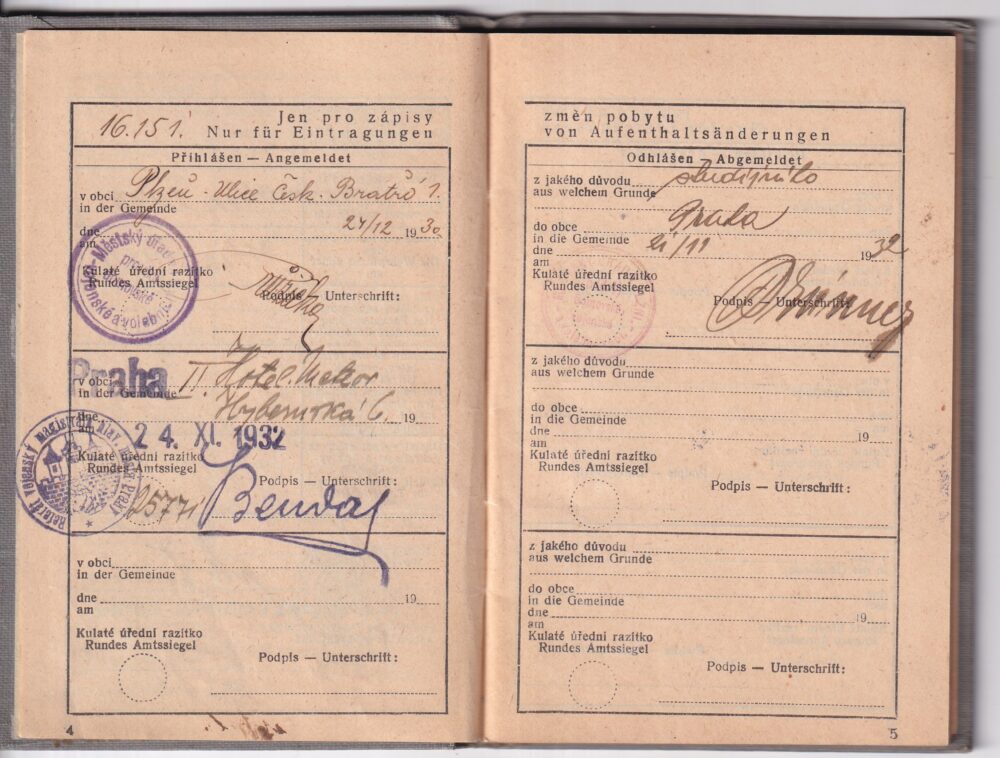 16.151.
Jen pro zápisy
Nur für Eintragungen
Přihlášen — Angemeldet
v obci Plzeň - Ulice Česk. Bratrů 1.
in der Gemeinde
dne 24/12 1930
am
Kulaté úřední razítko
Rundes Amtssiegel
Podpis — Unterschrift:
Městský úřad
v obci Praha II. Hotel Meteor
in der Gemeinde
Hybernská 6. 19
dne
am 24. XI. 1932
Kulaté úřední razítko
Rundes Amtssiegel
Podpis — Unterschrift:
Benda
Referát vojenský
v obci
in der Gemeinde
dne 19
am
Kulaté úřední razítko
Rundes Amtssiegel
Podpis — Unterschrift:
4
změn pobytu
von Aufenthaltsänderungen
Odhlášen — Abgemeldet
z jakého důvodu
aus welchem Grunde
do obce Praha
in die Gemeinde
dne 21/11 1932
am
Kulaté úřední razítko
Rundes Amtssiegel
Podpis — Unterschrift:
z jakého důvodu
aus welchem Grunde
do obce
in die Gemeinde
dne 19
am
Kulaté úřední razítko
Rundes Amtssiegel
Podpis — Unterschrift:
z jakého důvodu
aus welchem Grunde
do obce
in die Gemeinde
dne 19
am
Kulaté úřední razítko
Rundes Amtssiegel
Podpis — Unterschrift:
5